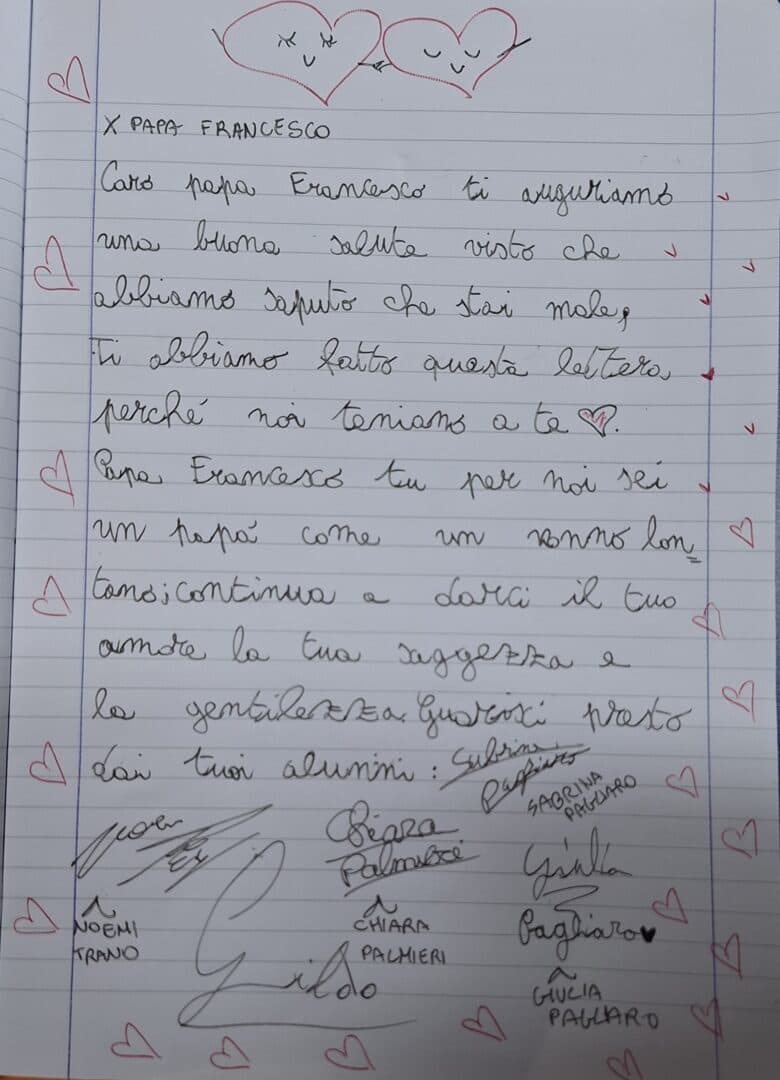 X PAPA FRANCESCO
Caro papa Francesco ti auguriamo
una buona salute visto che
abbiamo saputo che stai male,
Ti abbiamo fatto questa lettera
perché noi teniamo a te
Papa Francesco tu per noi sei
un papà come un nonno lon=
tano; continua a darci il tuo
amore la tua saggezza e
la gentilezza. Guarisci presto
dai tuoi alunni: Sabrina
Pagliaro
SABRINA
PAGLIARO
Chiara
Palmieri
Giulia
Pagliaro
NOEMI
TRANO
CHIARA
PALMIERI
Gildo
GIULIA
PAGLIARO